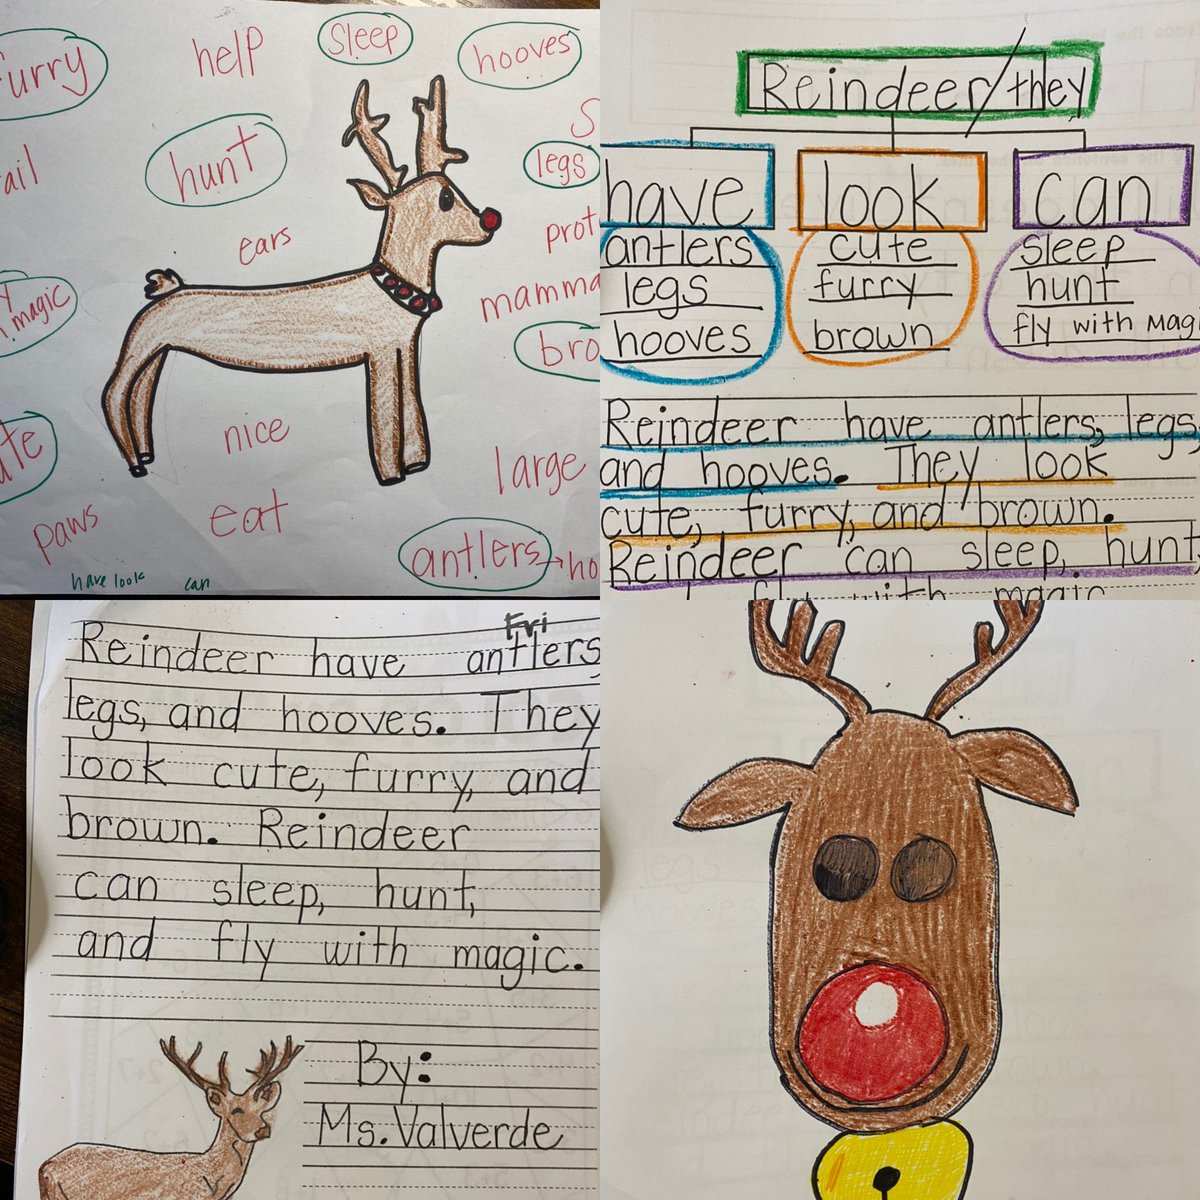 furry
help
sleep
hooves
hunt
legs
ears
magic
nice
large
eat
paws
antlers
have look can
Reindeer/they
have look can
antlers cute sleep
legs furry hunt
hooves brown fly with
Reindeer have antlers, legs,
and hooves. They look
cute, furry, and brown.
Reindeer can sleep, hunt,
fly with magic
Fri
Reindeer have antlers,
legs, and hooves. They
look cute, furry, and
brown. Reindeer
can sleep, hunt,
and fly with magic.
By:
Ms. Valverde